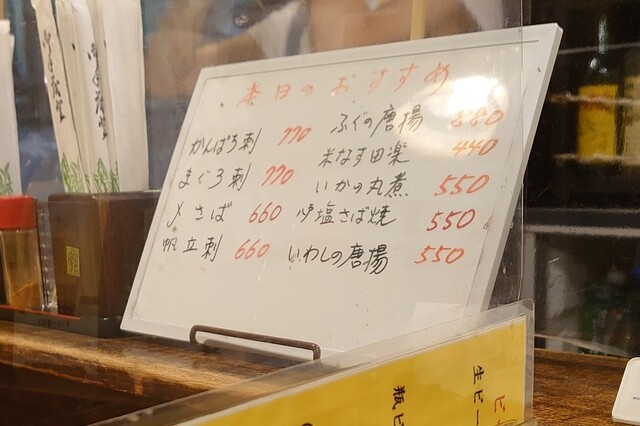 本日のおすすめ
かんぱち刺 770
まぐろ刺 770
〆さば 660
帆立刺 660
ふぐの唐揚 880
米なす田楽 440
いかの丸煮 550
炉塩さば焼 550
いわしの唐揚 550
生ビー
瓶ビ